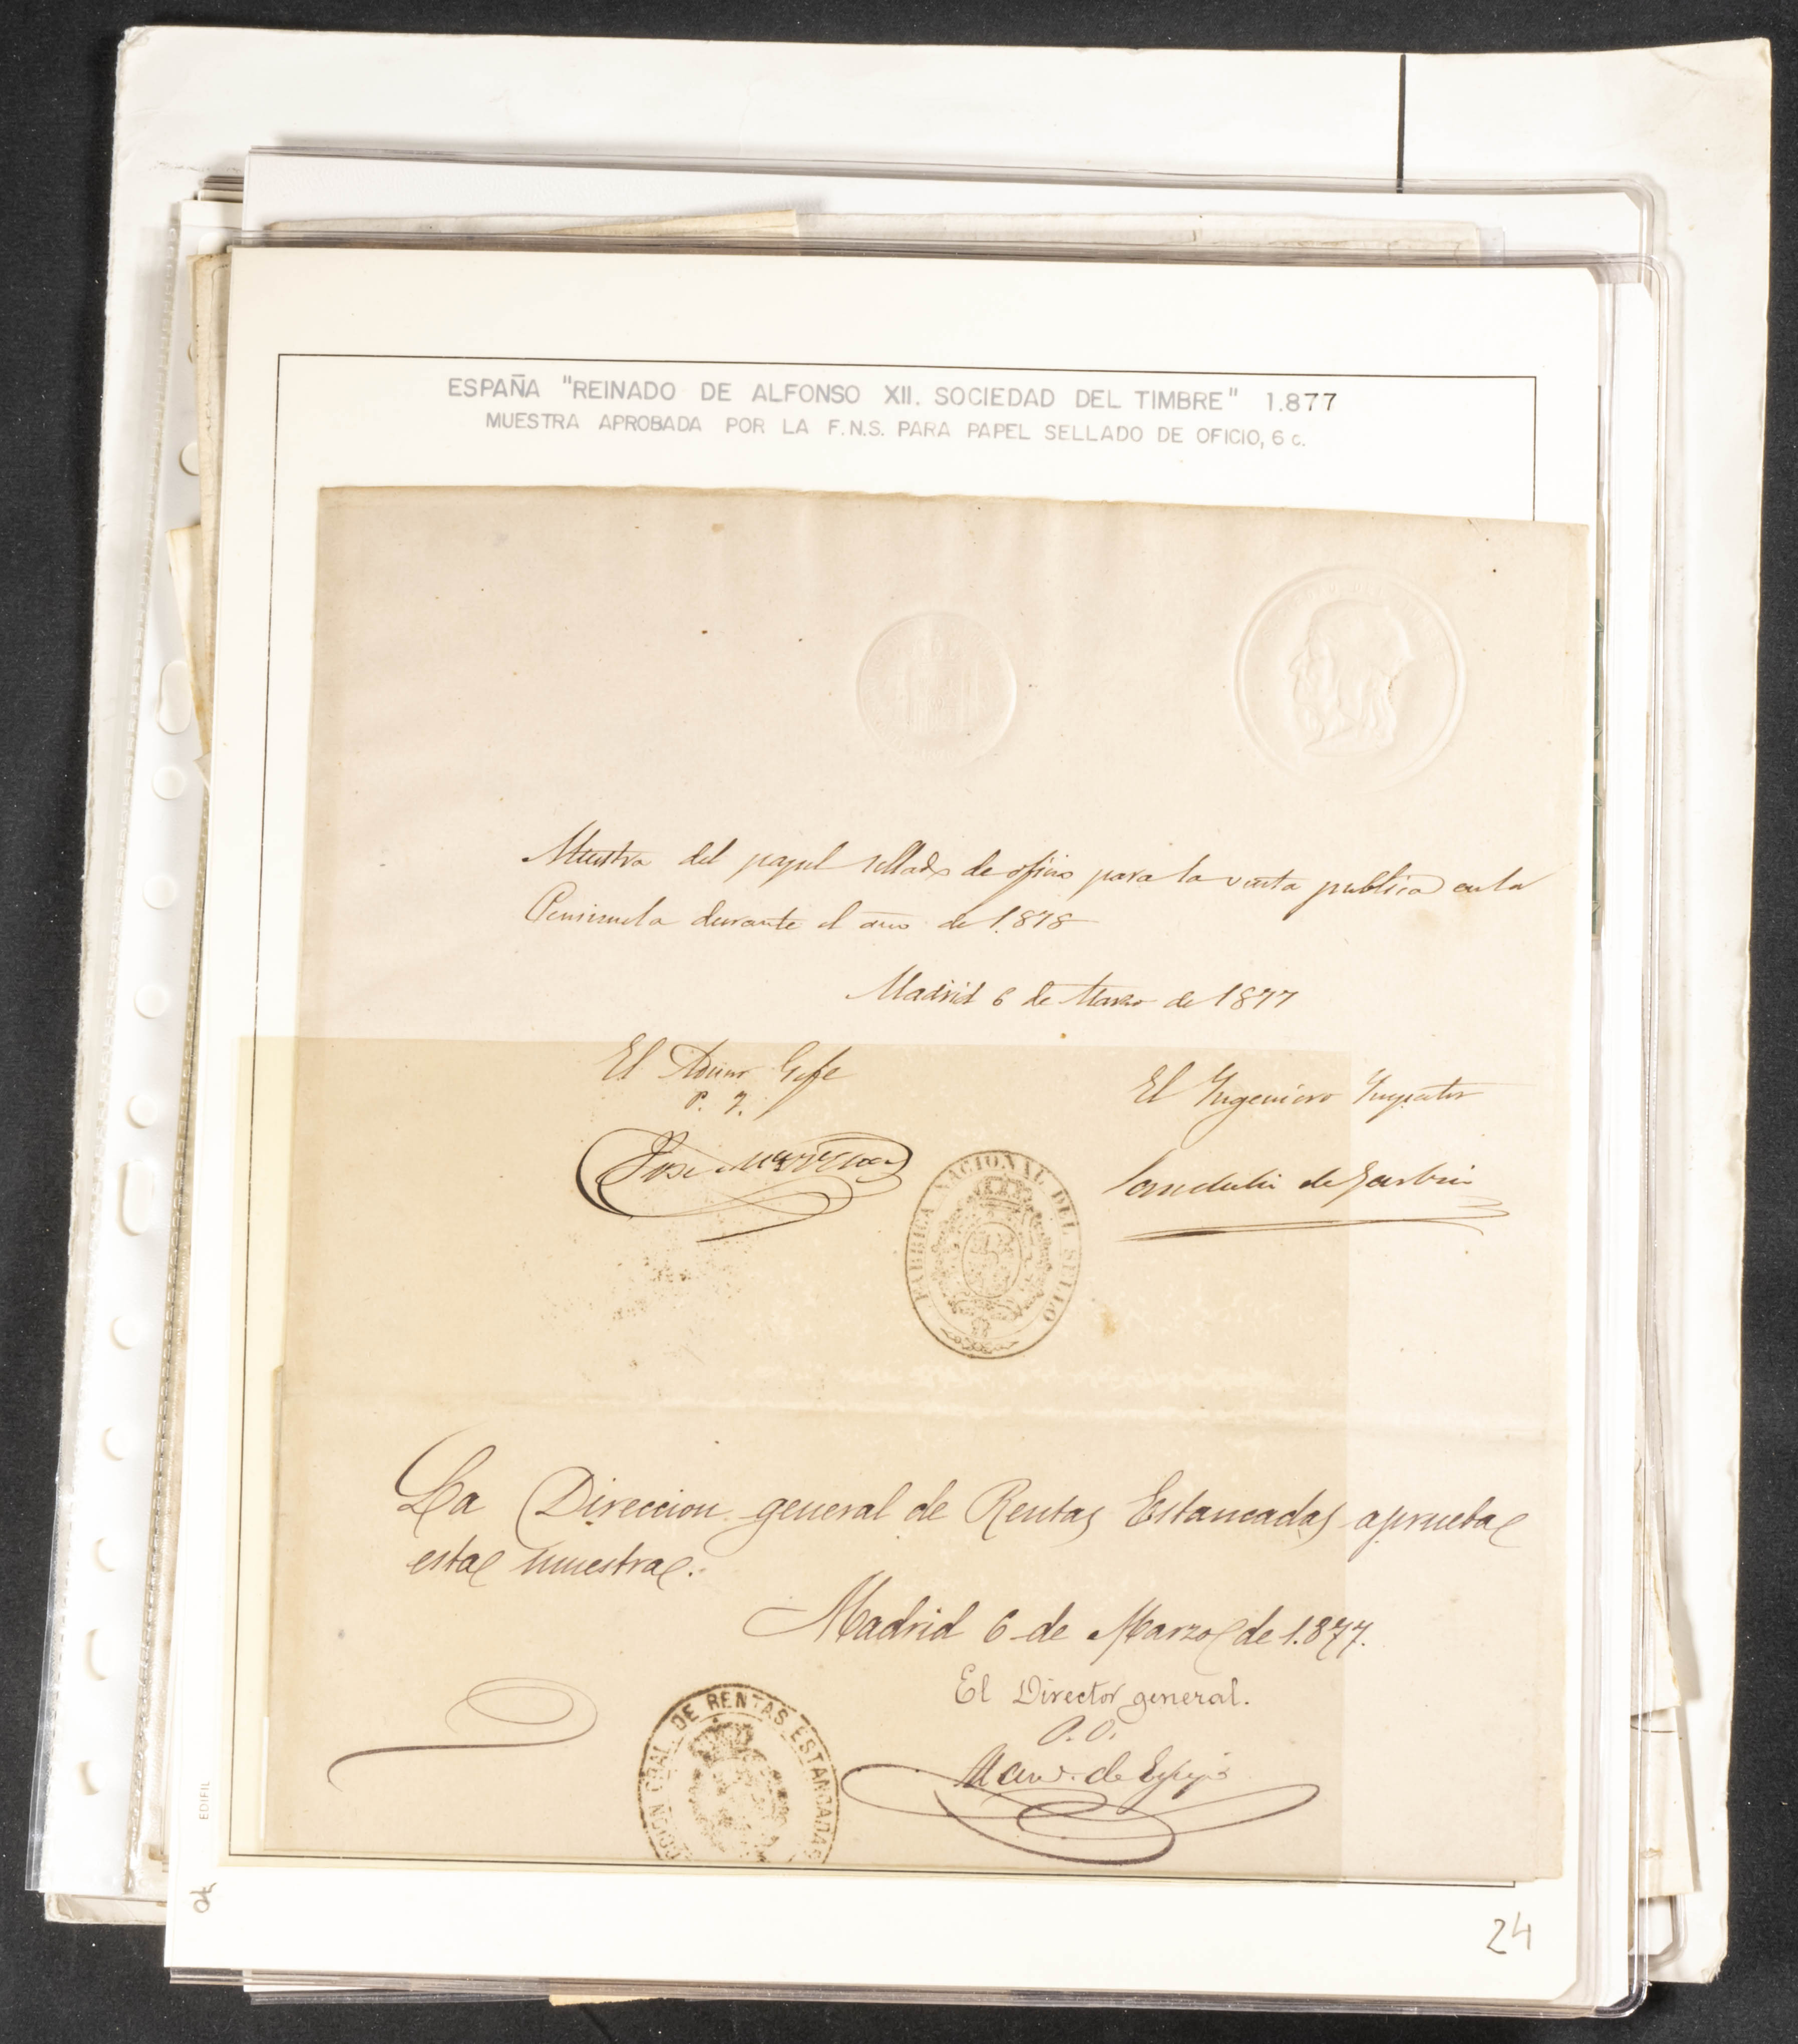 ESPAÑA "REINADO DE ALFONSO XII. SOCIEDAD DEL TIMBRE" 1.877
MUESTRA APROBADA POR LA F.N.S. PARA PAPEL SELLADO DE OFICIO, 6 c.
Muestra del papel sellado de oficio para la venta publica en la
Peninsula durante el año de 1.878
Madrid 6 de Marzo de 1877
El Admor Gefe
P. I.
El Ingeniero Inspector
José
de
FABRICA NACIONAL DEL SELLO
La Direccion general de Rentas Estancadas aprueba
esta muestra.
Madrid 6 de Marzo de 1.877.
El Director general.
P. O.
de Espejo
GRAL. DE RENTAS ESTANCADAS
EDIFIL
24